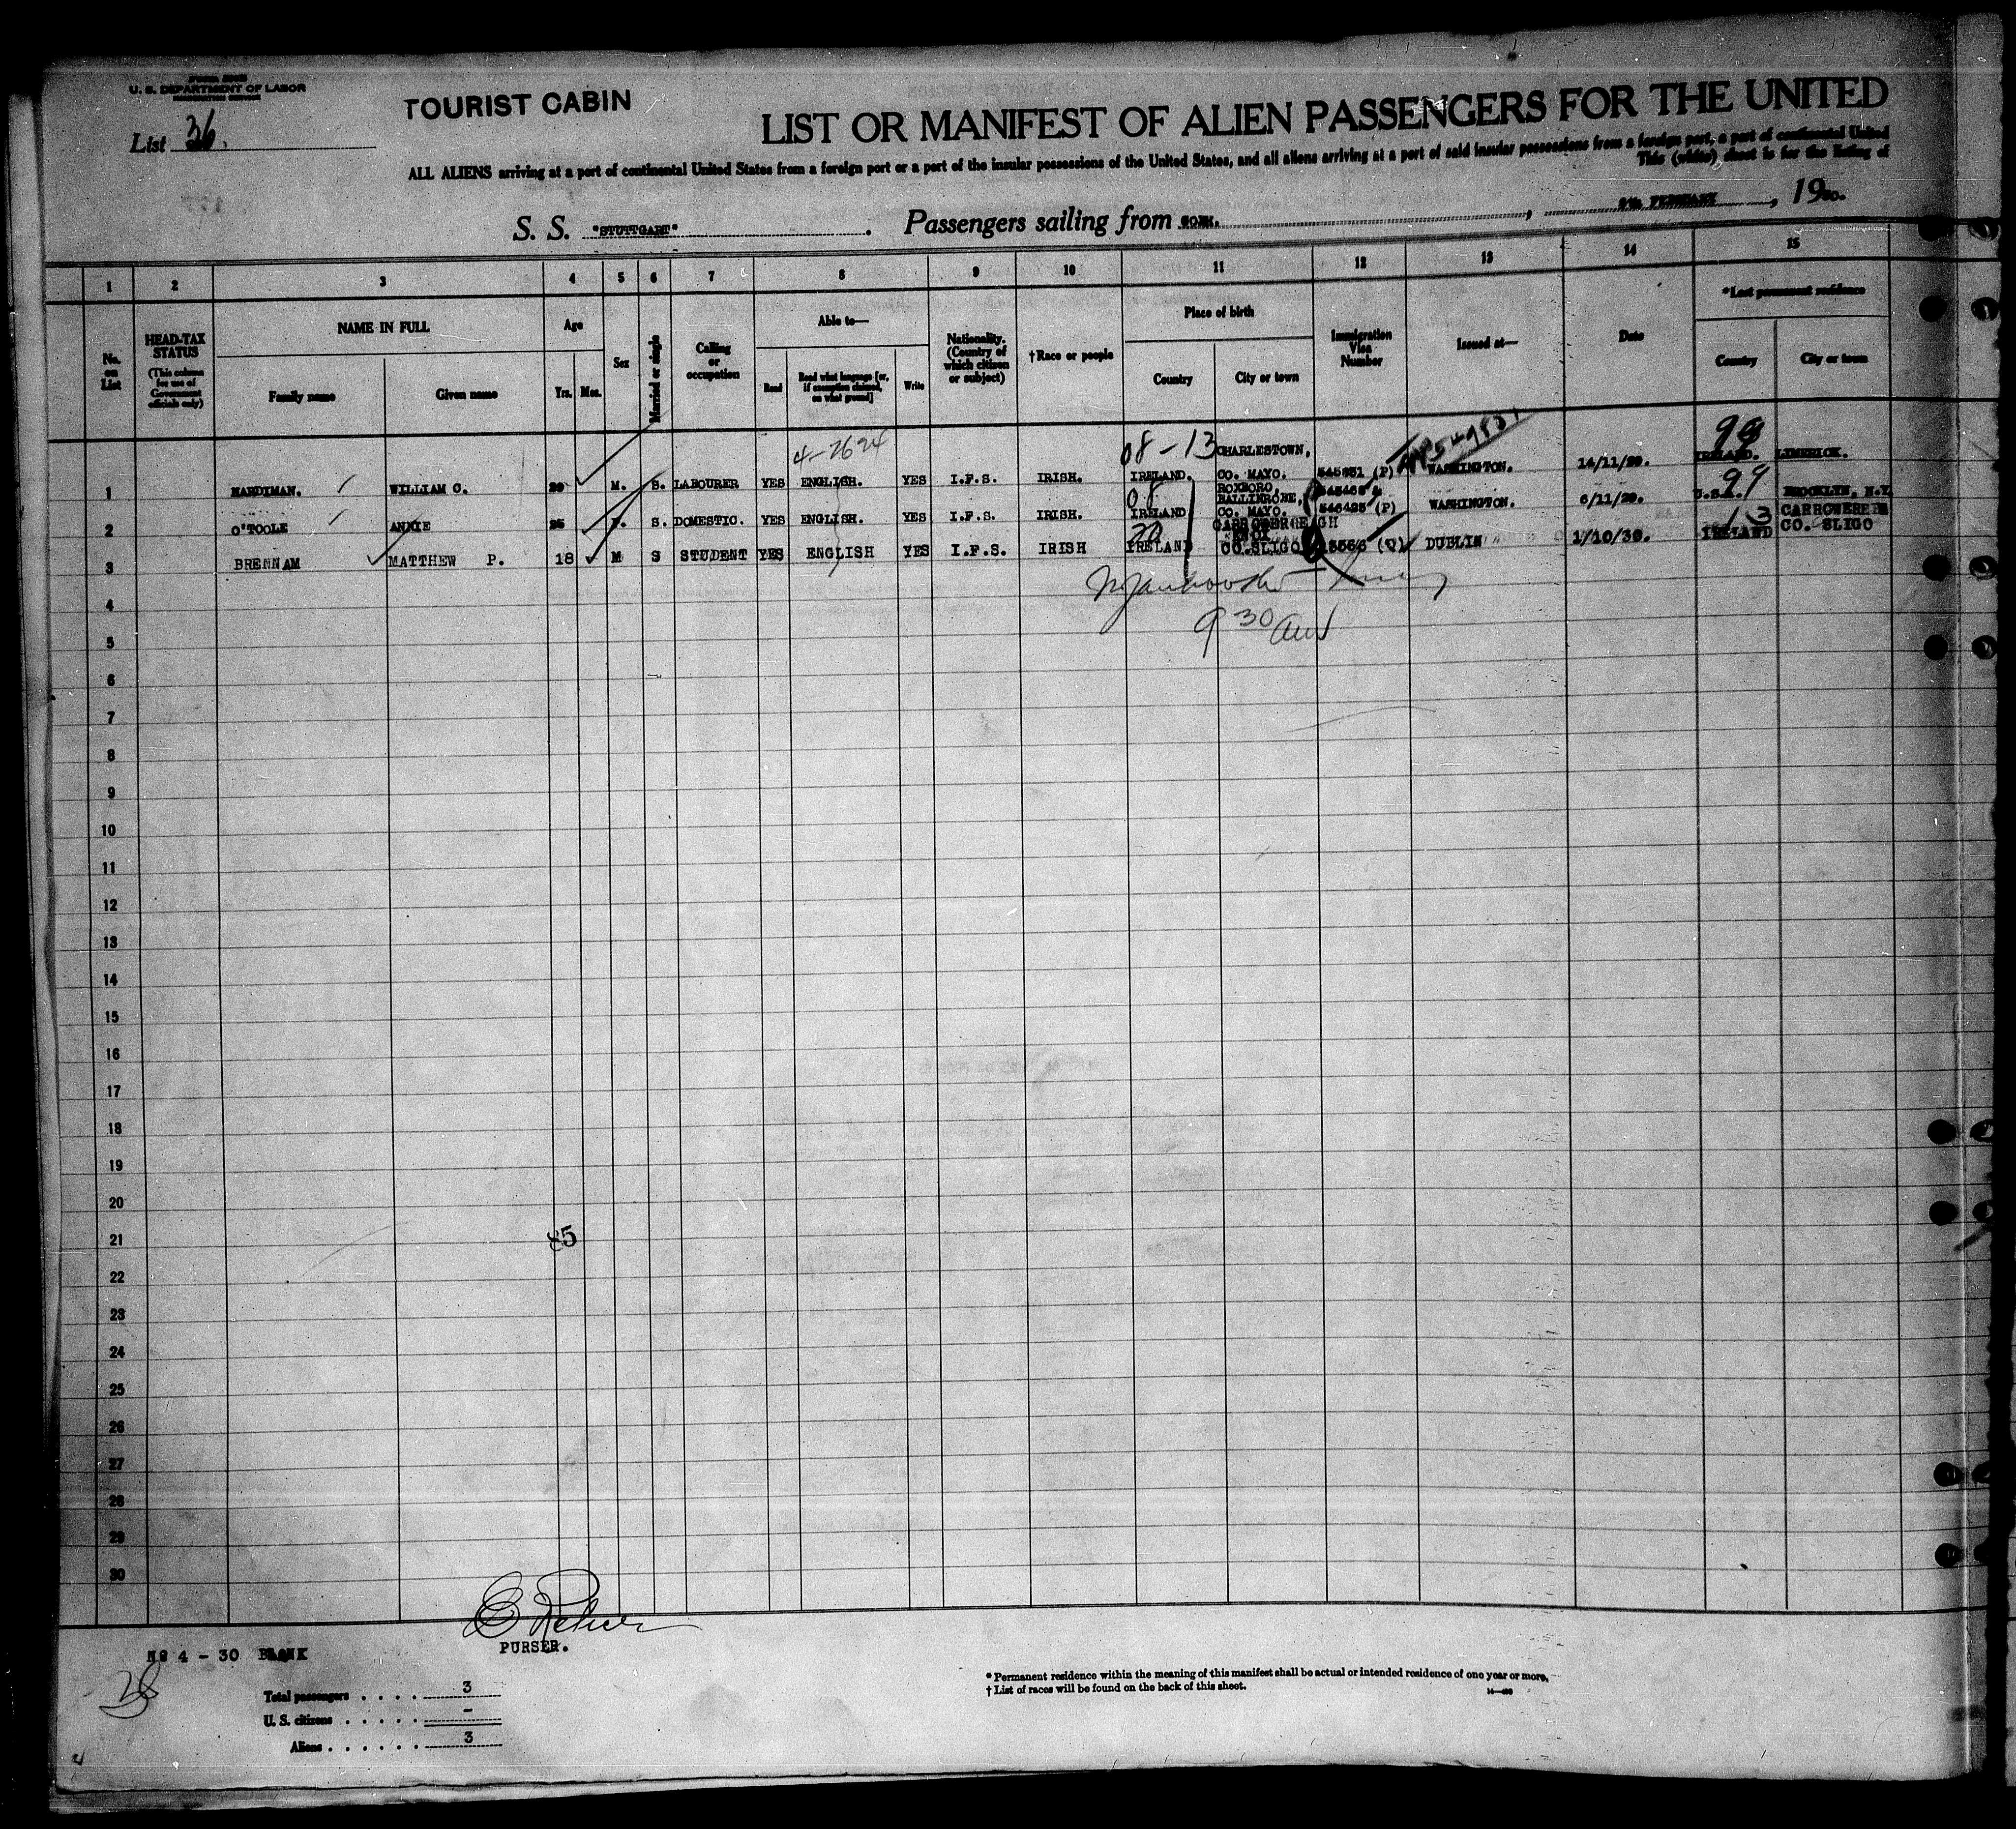 U. S. DEPARTMENT OF LABOR
List 36.
TOURIST CABIN
LIST OR MANIFEST OF ALIEN PASSENGERS FOR THE UNITED
ALL ALIENS arriving at a port of continental United States from a foreign port or a port of the insular possessions of the United States, and all aliens arriving at a port of said insular possessions from a foreign port, a port of continental United
This (white) sheet is for the listing of
S. S. "STUTTGART" Passengers sailing from CORK. , FEBRUARY , 1930.
1 2 3 4 5 6 7 8 9 10 11 12 13 14 15
No. on List
HEAD-TAX STATUS
(This column for use of Government officials only)
NAME IN FULL
Family name Given name
Age
Yrs. Mos.
Sex
Married or single
Calling or occupation
Able to—
Read Read what language [or, if exemption claimed, on what ground] Write
Nationality. (Country of which citizen or subject)
†Race or people
Place of birth
Country City or town
Immigration Visa Number
Issued at—
Date
*Last permanent residence
Country City or town
4-2624 08-13 CHARLESTOWN, 98
1 HARDIMAN. WILLIAM C. M. S. LABOURER YES ENGLISH. YES I.F.S. IRISH. IRELAND. CO. MAYO. (P) WASHINGTON. 14/11/29. IRELAND. LIMERICK.
08 ROXBORO, BALLINROBE, 99
2 O'TOOLE ANNIE 25 F. S. DOMESTIC. YES ENGLISH. YES I.F.S. IRISH. IRELAND CO. MAYO. (P) WASHINGTON. 6/11/29. U.S.A. BROOKLYN, N.Y.
20 13
3 BRENNAM MATTHEW P. 18 M S STUDENT YES ENGLISH YES I.F.S. IRISH IRELAND CO.SLIGO DUBLIN 1/10/30. IRELAND CO. SLIGO
9 30 AM
4
5
6
7
8
9
10
11
12
13
14
15
16
17
18
19
20
21 85
22
23
24
25
26
27
28
29
30
NO 4 - 30 BLANK
PURSER.
Total passengers . . . . 3
U. S. citizens . . . . . -
Aliens . . . . . . 3
* Permanent residence within the meaning of this manifest shall be actual or intended residence of one year or more.
† List of races will be found on the back of this sheet.